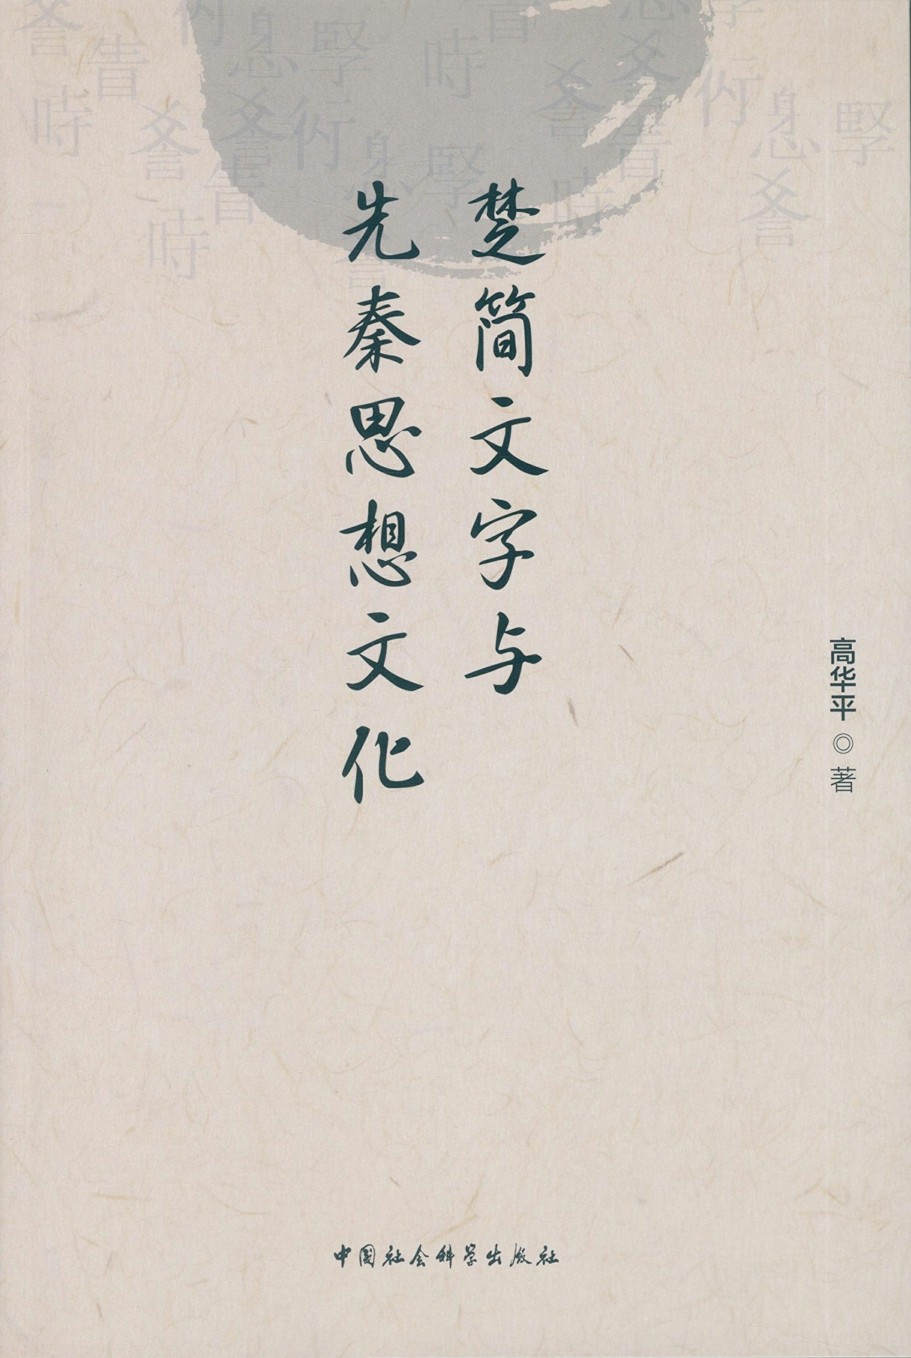 楚简文字与
先秦思想文化
高华平◎著
中国社会科学出版社